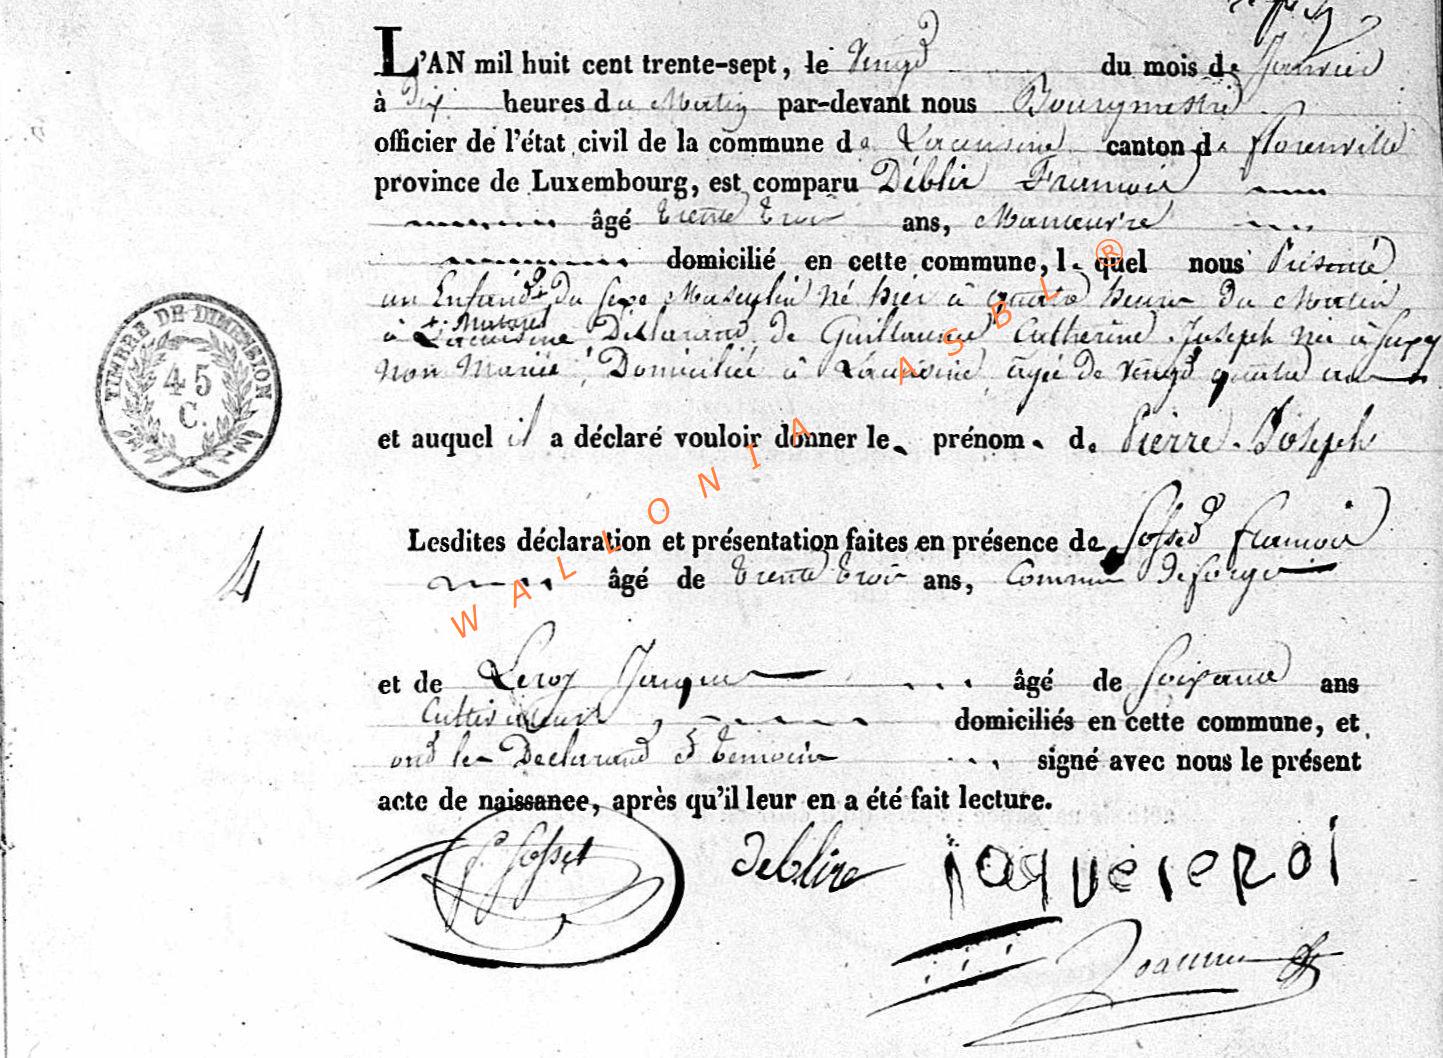 L'AN mil huit cent trente-sept, le Vingt du mois de Janvier
à Dix heures du Matin par-devant nous Bourgmestre
officier de l'état civil de la commune de Lacuisine canton de florenville
province de Luxembourg, est comparu Déblir Francois
âgé trente trois ans, Manœuvre
domicilié en cette commune, lequel nous Présenté
un Enfand du sexe Masculin né hier à quatre heure du Matin
+ Naturel
à Lacuisine Déclarand de Guillaume Catherine Joseph née à Suxy
non Mariée, Domiciliée à Lacuisine, agée de vengt quatre ans
et auquel il a déclaré vouloir donner le prénom de Pierre-Joseph
Lesdites déclaration et présentation faites en présence de Josset Francois
âgé de trente trois ans, Commis De forge
et de Leroy Jacque âgé de Soixante ans
Cultivateur domiciliés en cette commune, et
ond les Declarand et temoin signé avec nous le présent
acte de naissance, après qu'il leur en a été fait lecture.
debLire jaqueleroi
TIMBRE DE DIMENSION
45
C.
4
WALLONIA ASBL ®